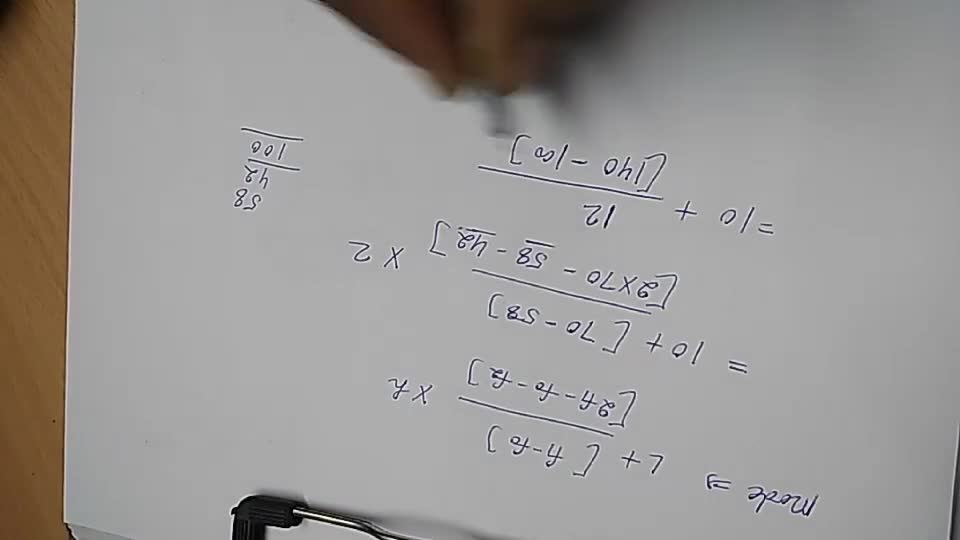 Mode ⇒ L + [f1 - f0]
[2f1 - f0 - f2] × h
= 10 + [70 - 58]
[2×70 - 58 - 42] × 2
= 10 + 12
[140 - 100]
58
42
100